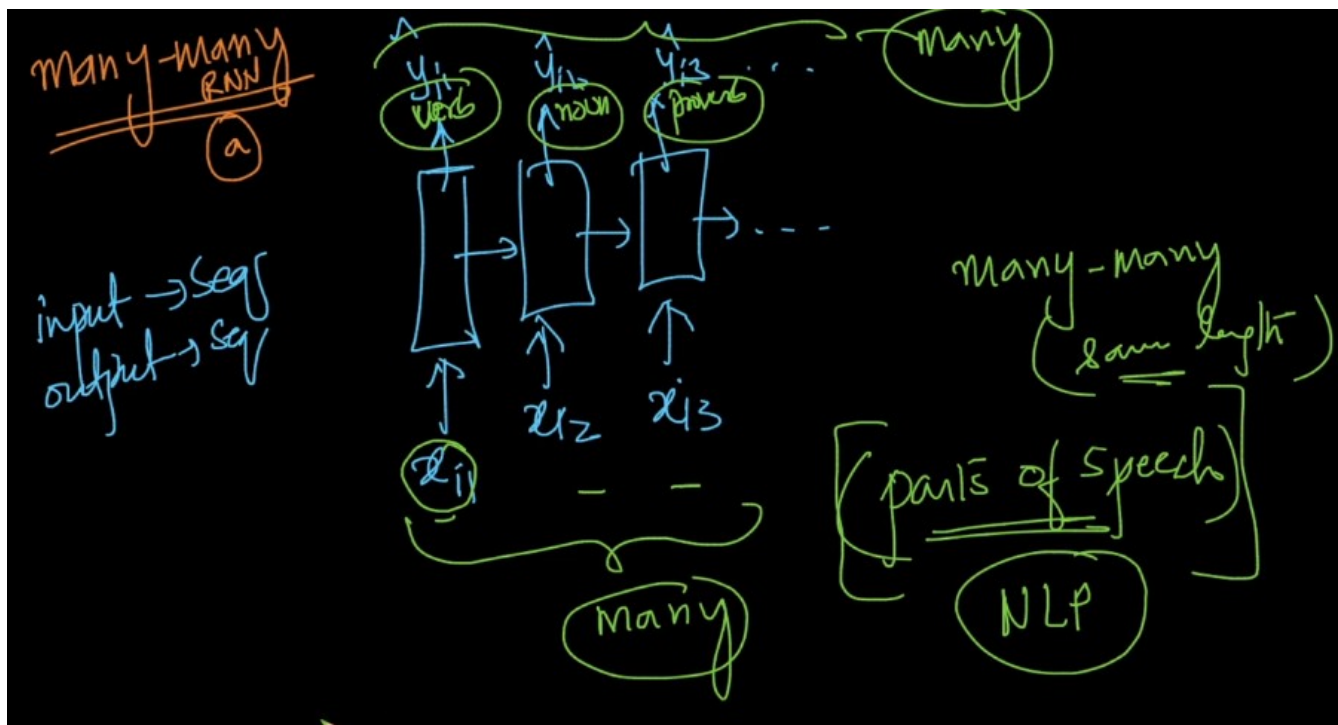 many-many
RNN
a
input → seq
output → seq
yi1 yi2 yi3 ....
many
verb noun proverb
....
xi1 xi2 xi3
many
many-many
(same length)
[(parts of speech)]
NLP